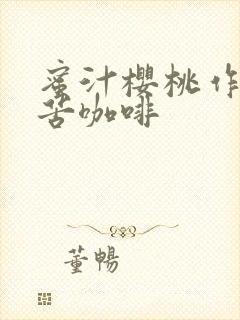 蜜汁樱桃作
苦咖啡
董暢